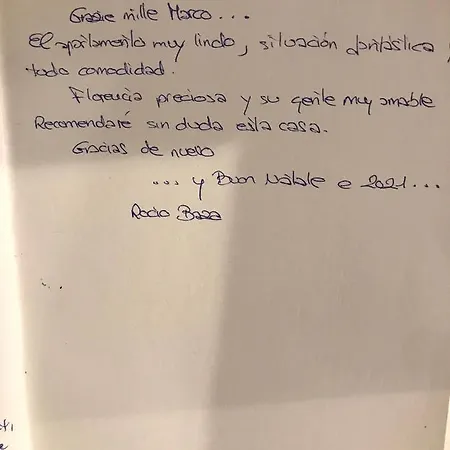 Grazie mille Marco...
El apartamento muy lindo, situación fantástica,
todo comodidad.
Florencia preciosa y su gente muy amable
Recomendaré sin duda esta casa.
Gracias de nuevo
... y Buon Natale e 2021...
Rocio Baza